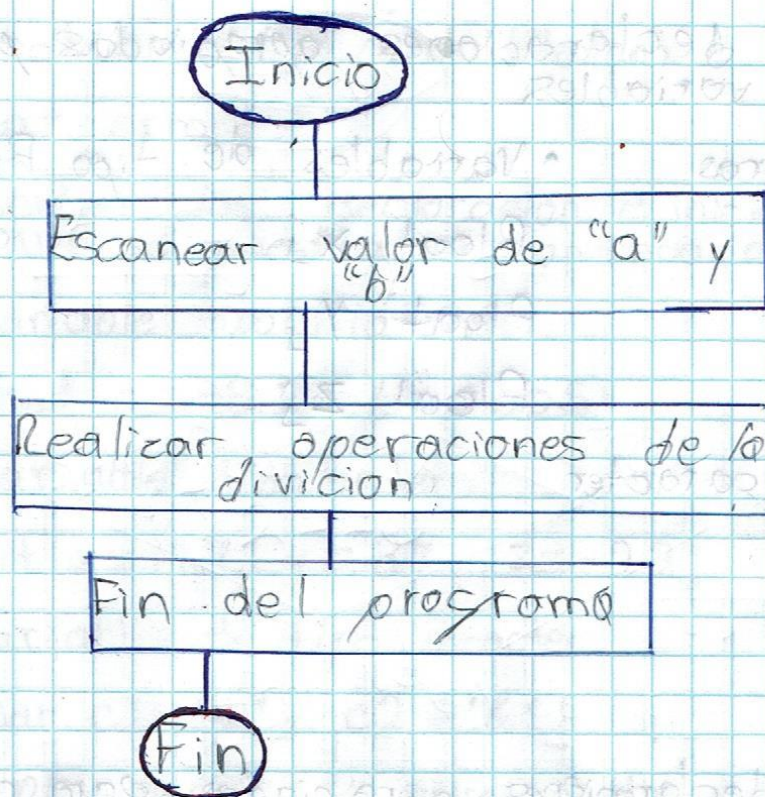 Inicio
Escanear valor de "a" y
"b"
Realizar operaciones de la
divicion
Fin del programa
Fin